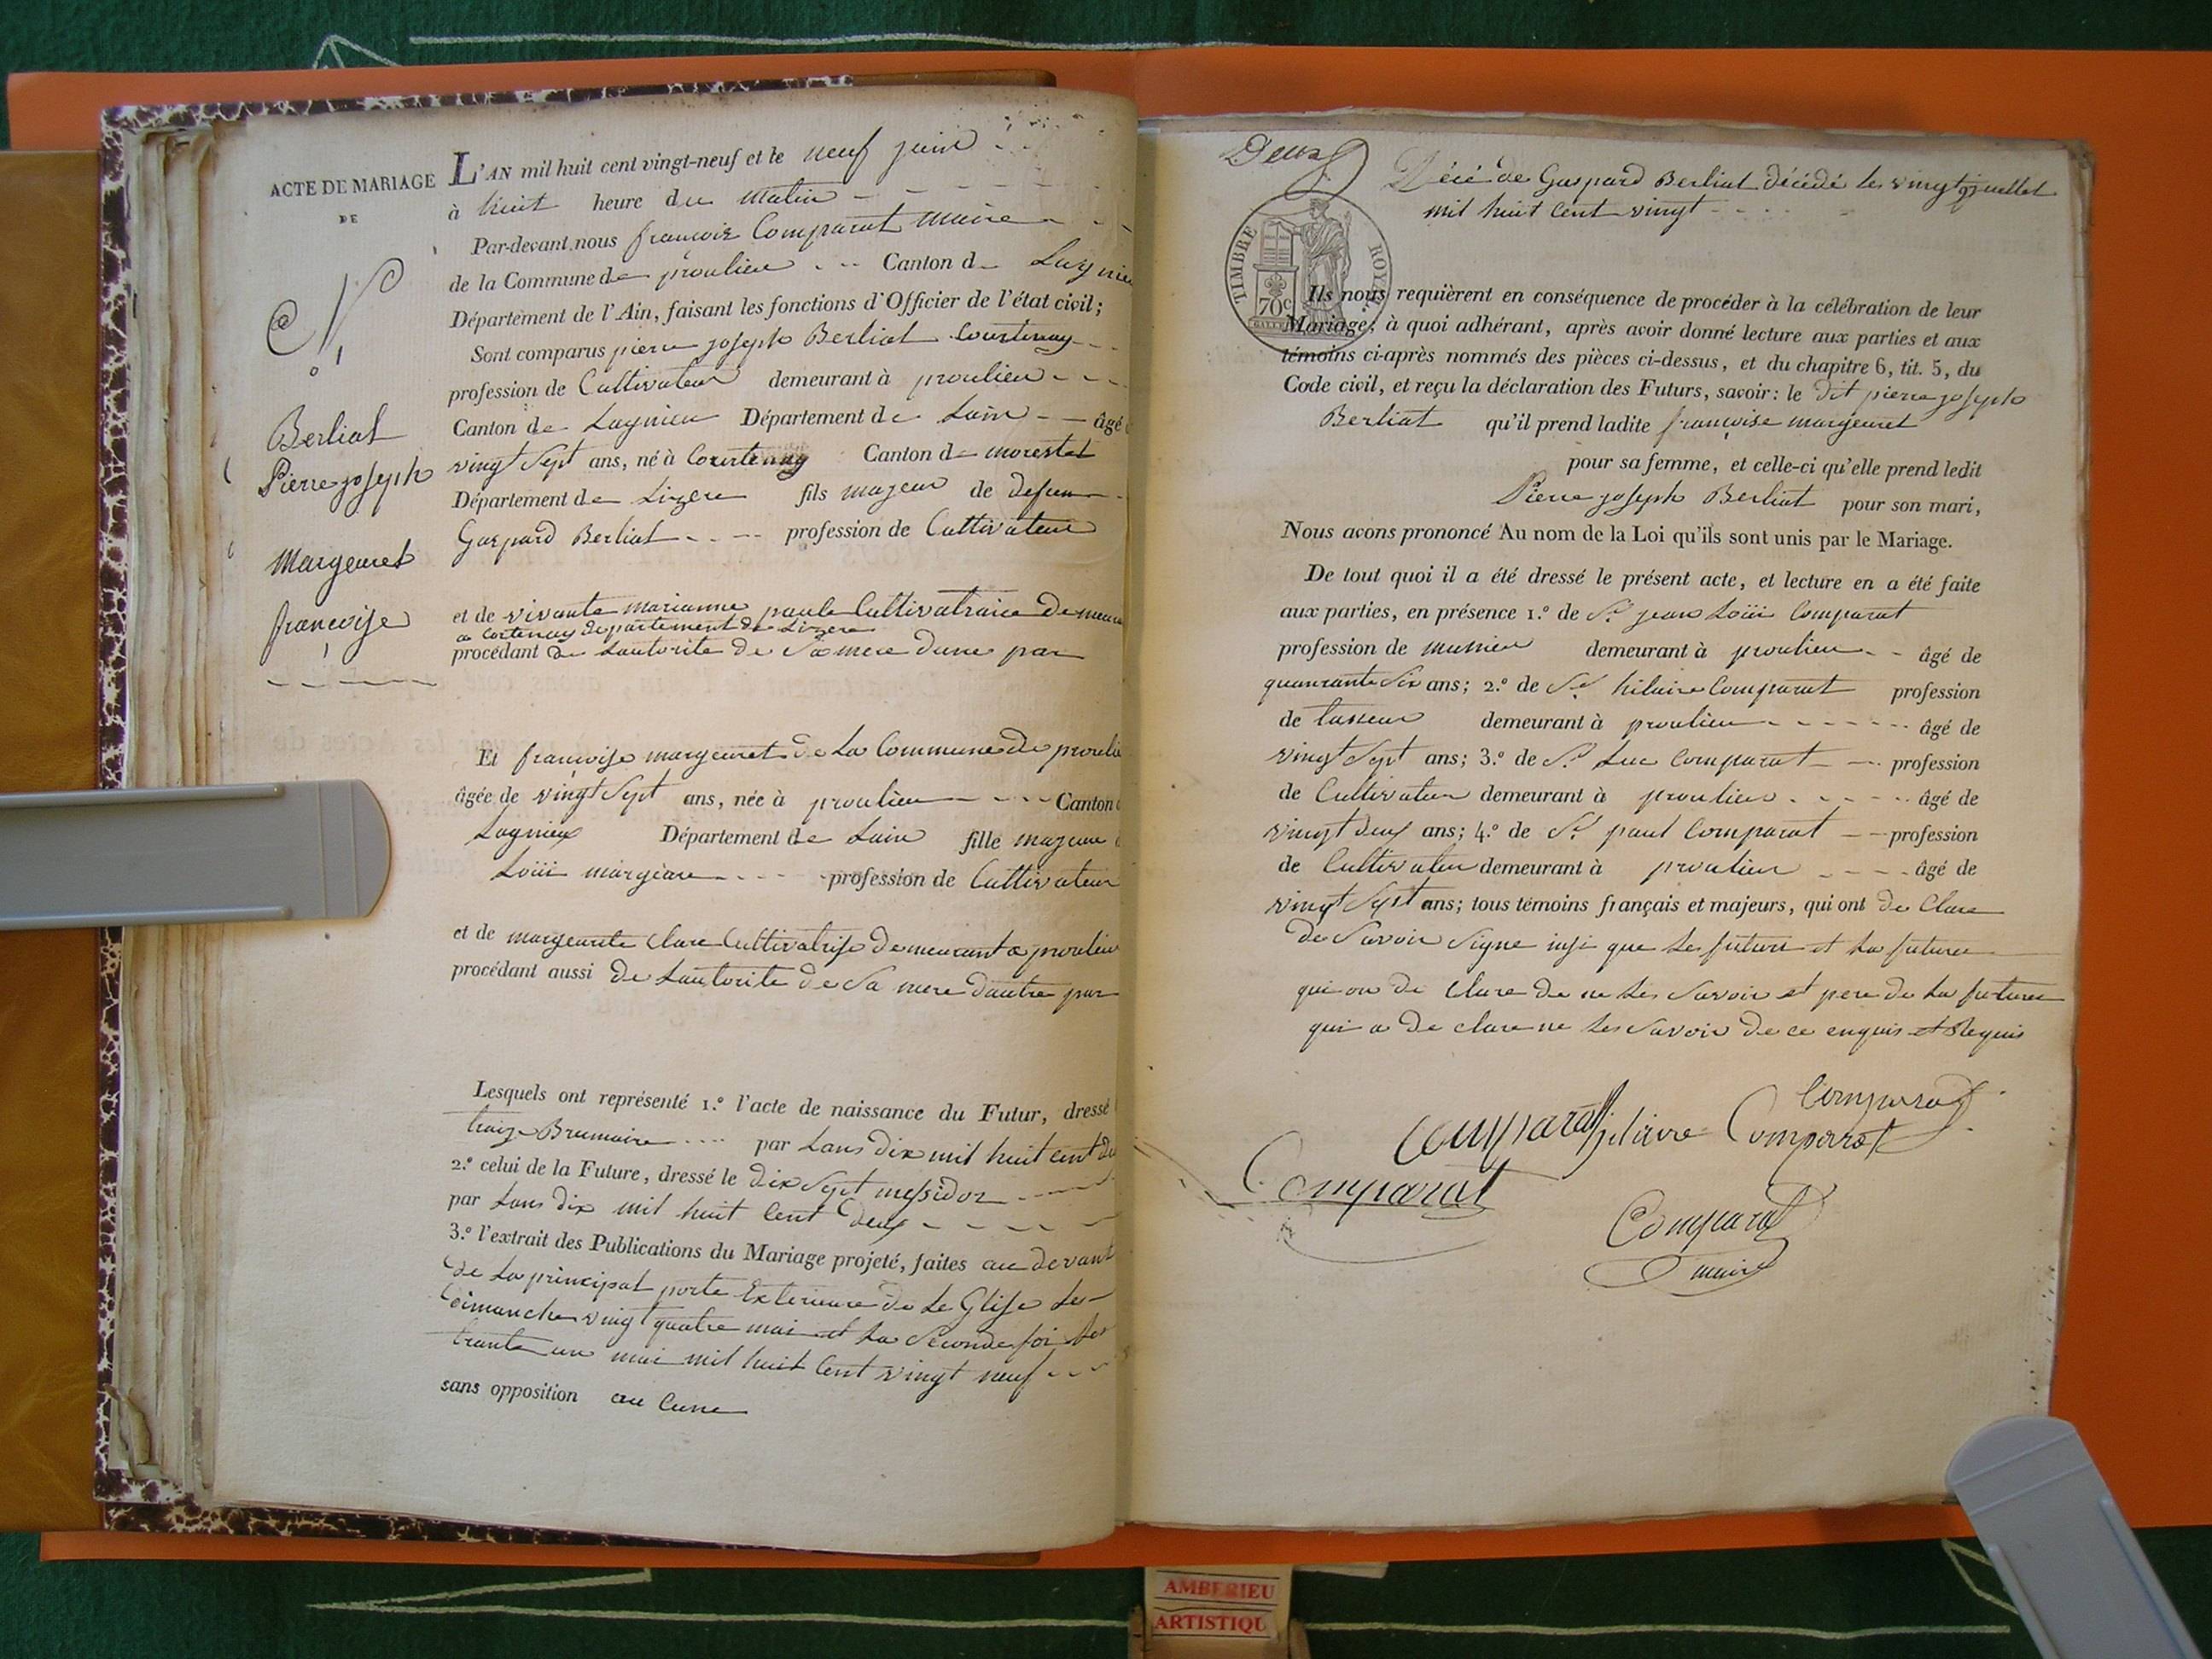 ACTE DE MARIAGE
DE
N
Berliat
Pierre joseph
Margeuret
françoise
L'AN mil huit cent vingt-neuf et le neuf juin
à huit heure du matin
Par-devant nous françois Comparat maire
de la Commune de proulieu Canton d Lagnieu
Département de l'Ain, faisant les fonctions d'Officier de l'état civil;
Sont comparus pierre joseph Berliat Courtenay
profession de Cultivateur demeurant à proulieu
Canton de Lagnieu Département de Lain âgé
vingt Sept ans, né à Courtenay Canton d morestel
Département de Lizere fils majeur de defun
Gaspard Berliat profession de Cultivateur
et de vivante marianne paule Cultivatraice Demeura
a Cortenay departement de Lizere
procédant de Lautorite de Sa mere dune par
Et françoise margeuret de La Commune de proulie
âgée de vingt Sept ans, née à proulieu Canton
Lagnieu Département de Lain fille majeure
Loüi margëare profession de Cultivateur
et de margeurite Clare Cultivatrise demeurant a proulieu
procédant aussi de Lautorite de Sa mere dautre par
Lesquels ont représenté 1.º l'acte de naissance du Futur, dressé
traize Brumaire par Lans dix mil huit cent de
2.º celui de la Future, dressé le dix Sept messidor
par Lans dix mil huit Cent deux
3.º l'extrait des Publications du Mariage projeté, faites au devant
de La principal porte Exterieure de Le Glise Le
dimanche vingt quatre mai et La Seconde foi Le
trante un mai mil huit Cent vingt neuf
sans opposition au Cune
Deux
de Gaspard Berliat décédé les vingt juellet
mil huit Cent vingt
TIMBRE ROYAL
70c
Ils nous requièrent en conséquence de procéder à la célébration de leur
Mariage; à quoi adhérant, après avoir donné lecture aux parties et aux
témoins ci-après nommés des pièces ci-dessus, et du chapitre 6, tit. 5, du
Code civil, et reçu la déclaration des Futurs, savoir: le dit pierre joseph
Berliat qu'il prend ladite françoise margeuret
pour sa femme, et celle-ci qu'elle prend ledit
Pierre joseph Berliat pour son mari,
Nous avons prononcé Au nom de la Loi qu'ils sont unis par le Mariage.
De tout quoi il a été dressé le présent acte, et lecture en a été faite
aux parties, en présence 1.º de Sr jean Loüi Comparat
profession de munier demeurant à proulieu âgé de
quanrante Six ans; 2.º de Sr hilaire Comparat profession
de demeurant à proulieu âgé de
vingt Sept ans; 3.º de Sr Luc Comparat profession
de Cultivateur demeurant à proulieu âgé de
vingt deux ans; 4.º de Sr paul Comparat profession
de Cultivateur demeurant à proulieu âgé de
vingt Sept ans; tous témoins français et majeurs, qui ont de Clare
de Savoir Signe insi que Les futeur et La future
qui on de Clare de ne Les Savoir et pere de La future
qui a de clare ne Les Savoir de ce enquis et Requis
Comparat
Comparat hilaire Comparat
Comparat
Comparat
maire
AMBERIEU
ARTISTIQU